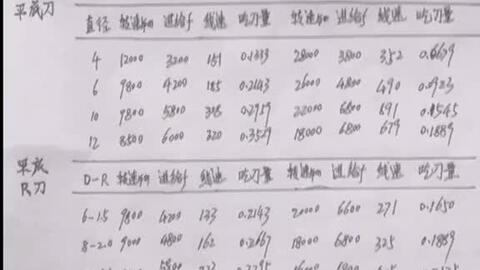 平底刀
直径 转速rpm 进给f 线速 吃刀量 转速rpm 进给f 线速 吃刀量
4 12000 3200 151 0.1333 28000 3800 352 0.0679
6 9800 4200 185 0.2143 26000 4800 490 0.0923
10 9800 5800 308 0.2959 22000 6800 691 0.1545
12 8500 6000 320 0.3529 18000 6800 679 0.1889
平底R刀
D-R 转速rpm 进给f 线速 吃刀量 转速rpm 进给f 线速 吃刀量
6-1.5 9800 4200 133 0.2143 20000 6600 271 0.1650
8-2.0 9000 4800 162 0.2667 18000 6800 325 0.1889
5800